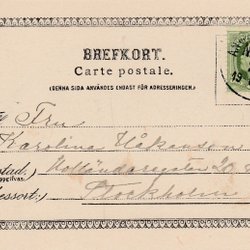 BREFKORT.
Carte postale.
(DENNA SIDA ANVÄNDES ENDAST FÖR ADRESSERINGEN.)
Fru
Karolina Håkansson
stad, Holländaregatan 20
Stockholm
essort: